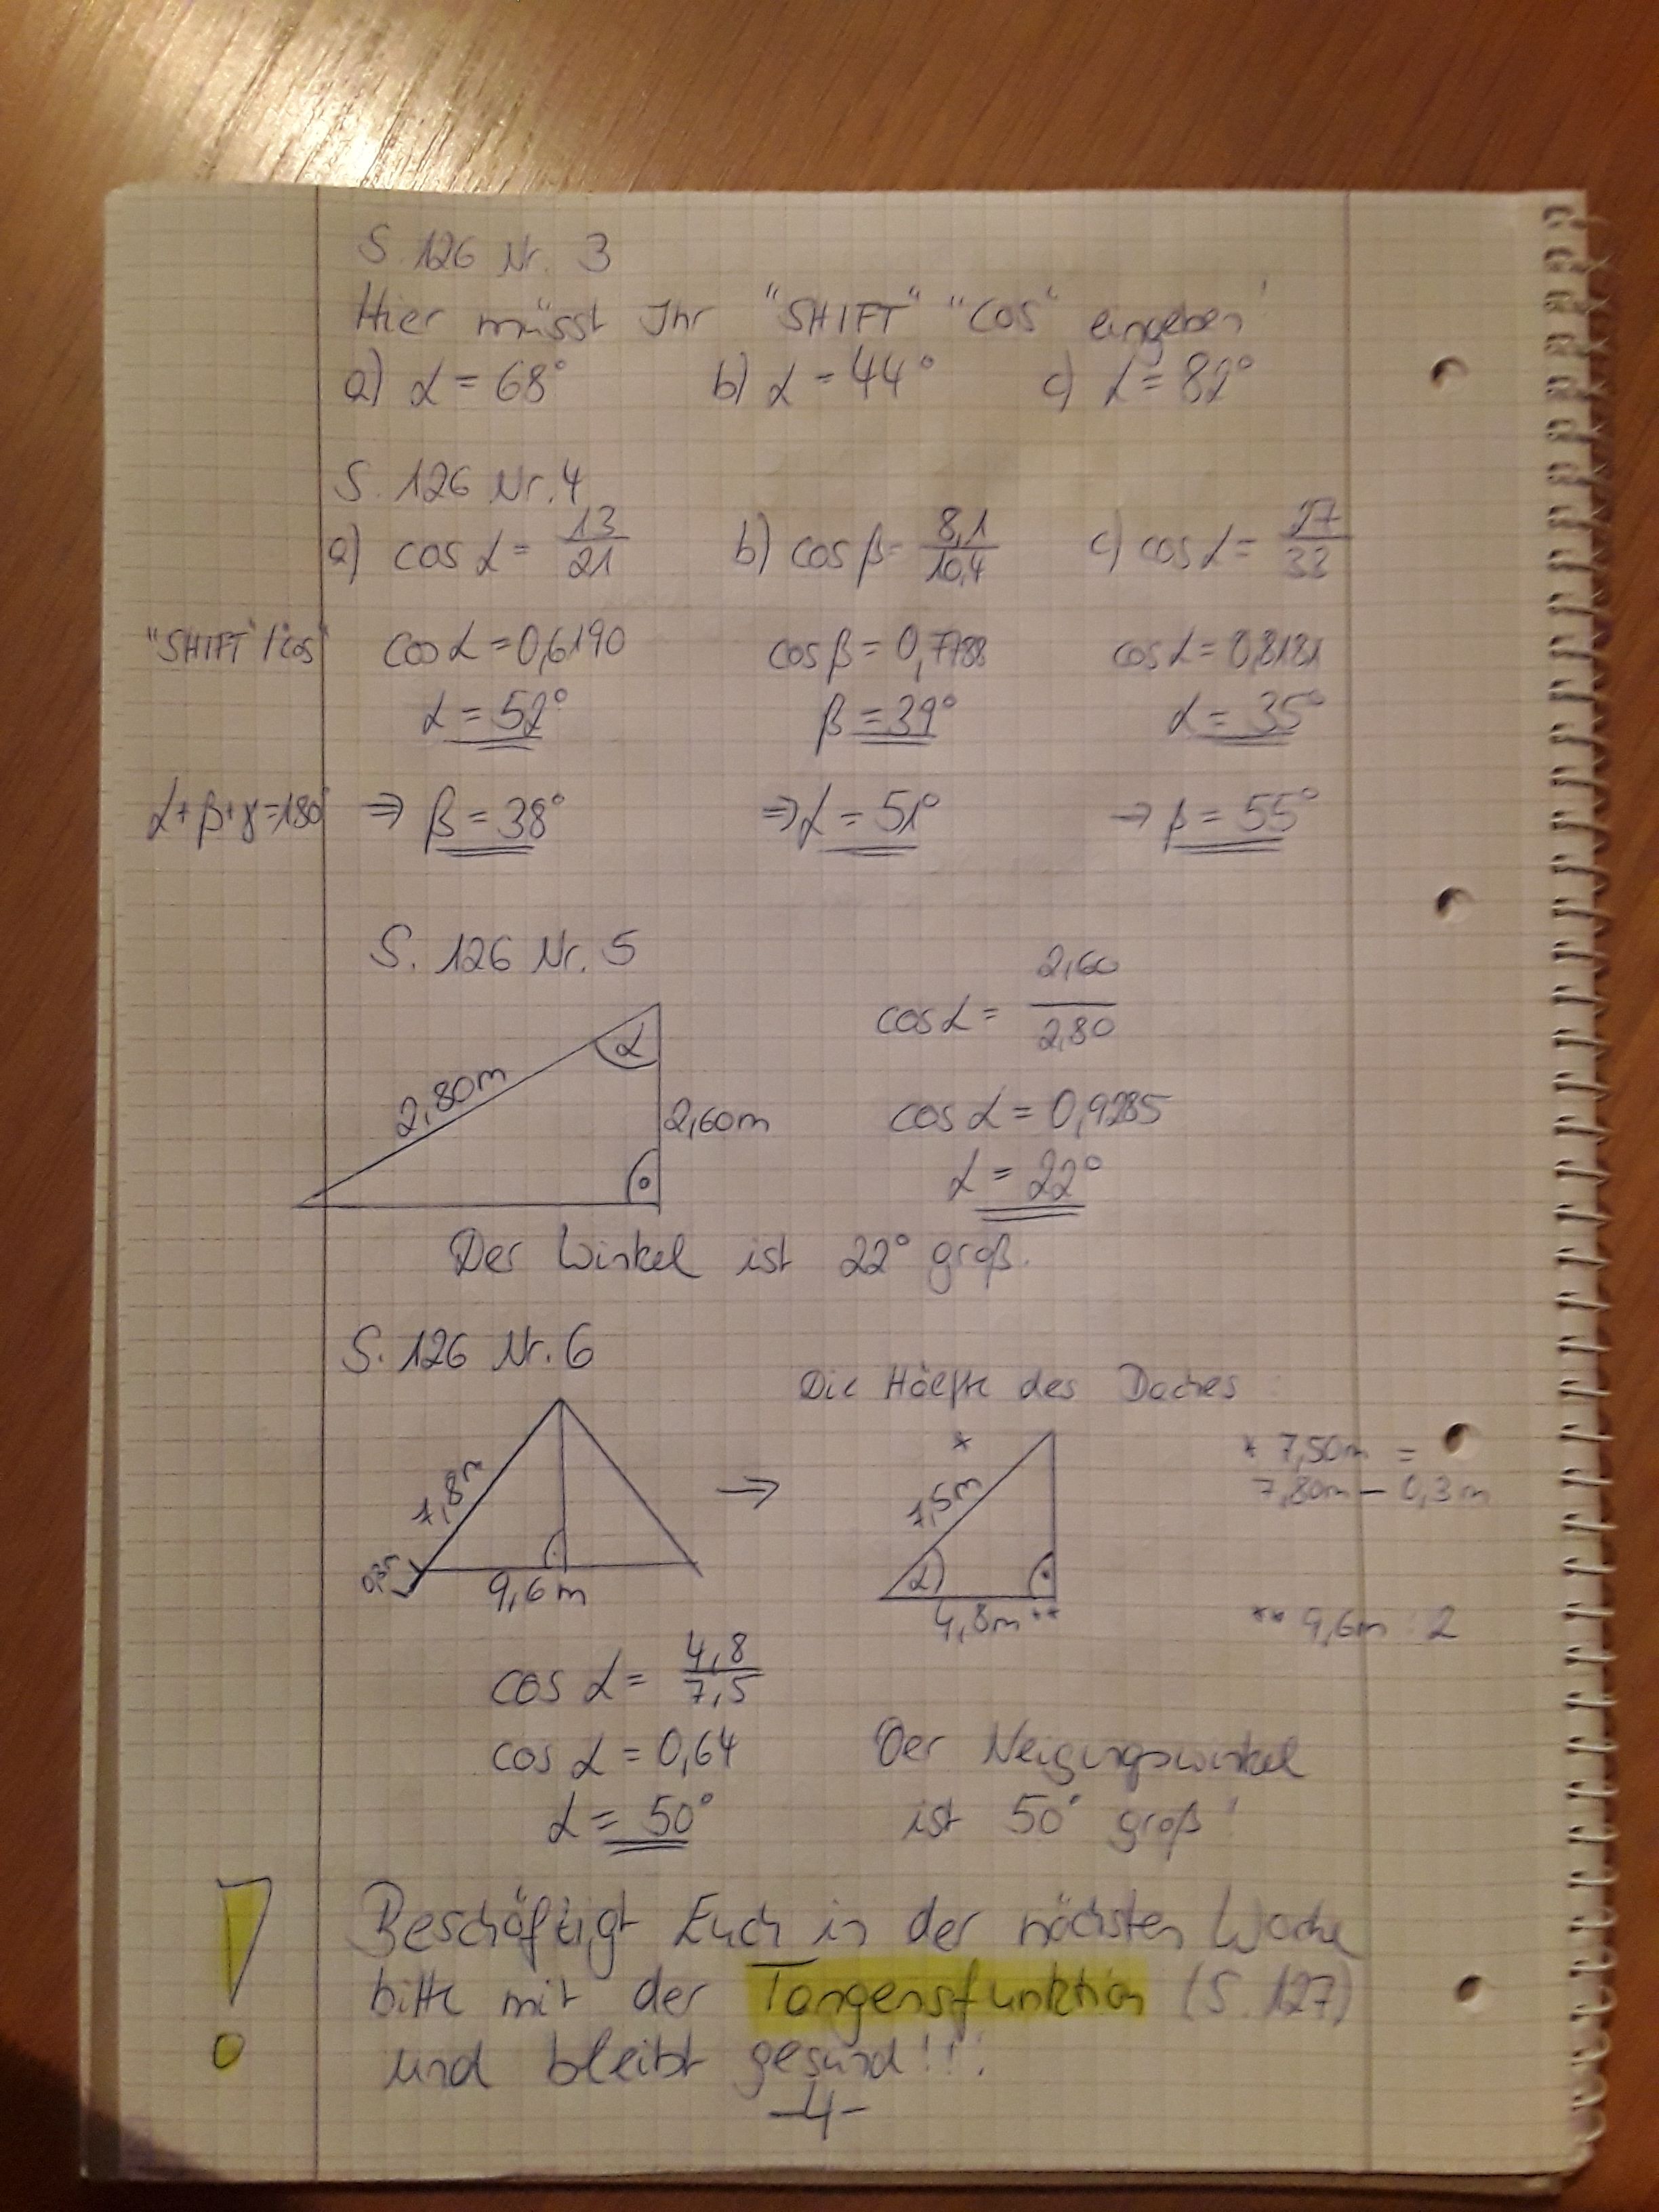 S. 126 Nr. 3
Hier müsst Ihr "SHIFT" "COS" eingeben!
a) α = 68° b) α = 44° c) α = 82°
S. 126 Nr. 4
a) cos α = 13/21 b) cos β = 8,1/10,4 c) cos α = 27/33
"SHIFT"/"cos" cos α = 0,6190 cos β = 0,7788 cos α = 0,8181
α = 52° β = 39° α = 35°
α + β + γ = 180° ⇒ β = 38° ⇒ α = 51° → β = 55°
S. 126 Nr. 5
cos α = 2,60/2,80
α
2,80m
2,60m
cos α = 0,9285
α = 22°
Der Winkel ist 22° groß.
S. 126 Nr. 6
Die Hälfte des Daches:
7,8m
0,3m
9,6m
→
*
7,5m
α
4,8m **
* 7,50m =
7,80m - 0,3m
** 9,6m : 2
cos α = 4,8/7,5
cos α = 0,64
α = 50°
Der Neigungswinkel
ist 50° groß!
! Beschäftigt Euch in der nächsten Woche
bitte mit der Tangensfunktion (S. 127)
und bleibt gesund!!!
-4-